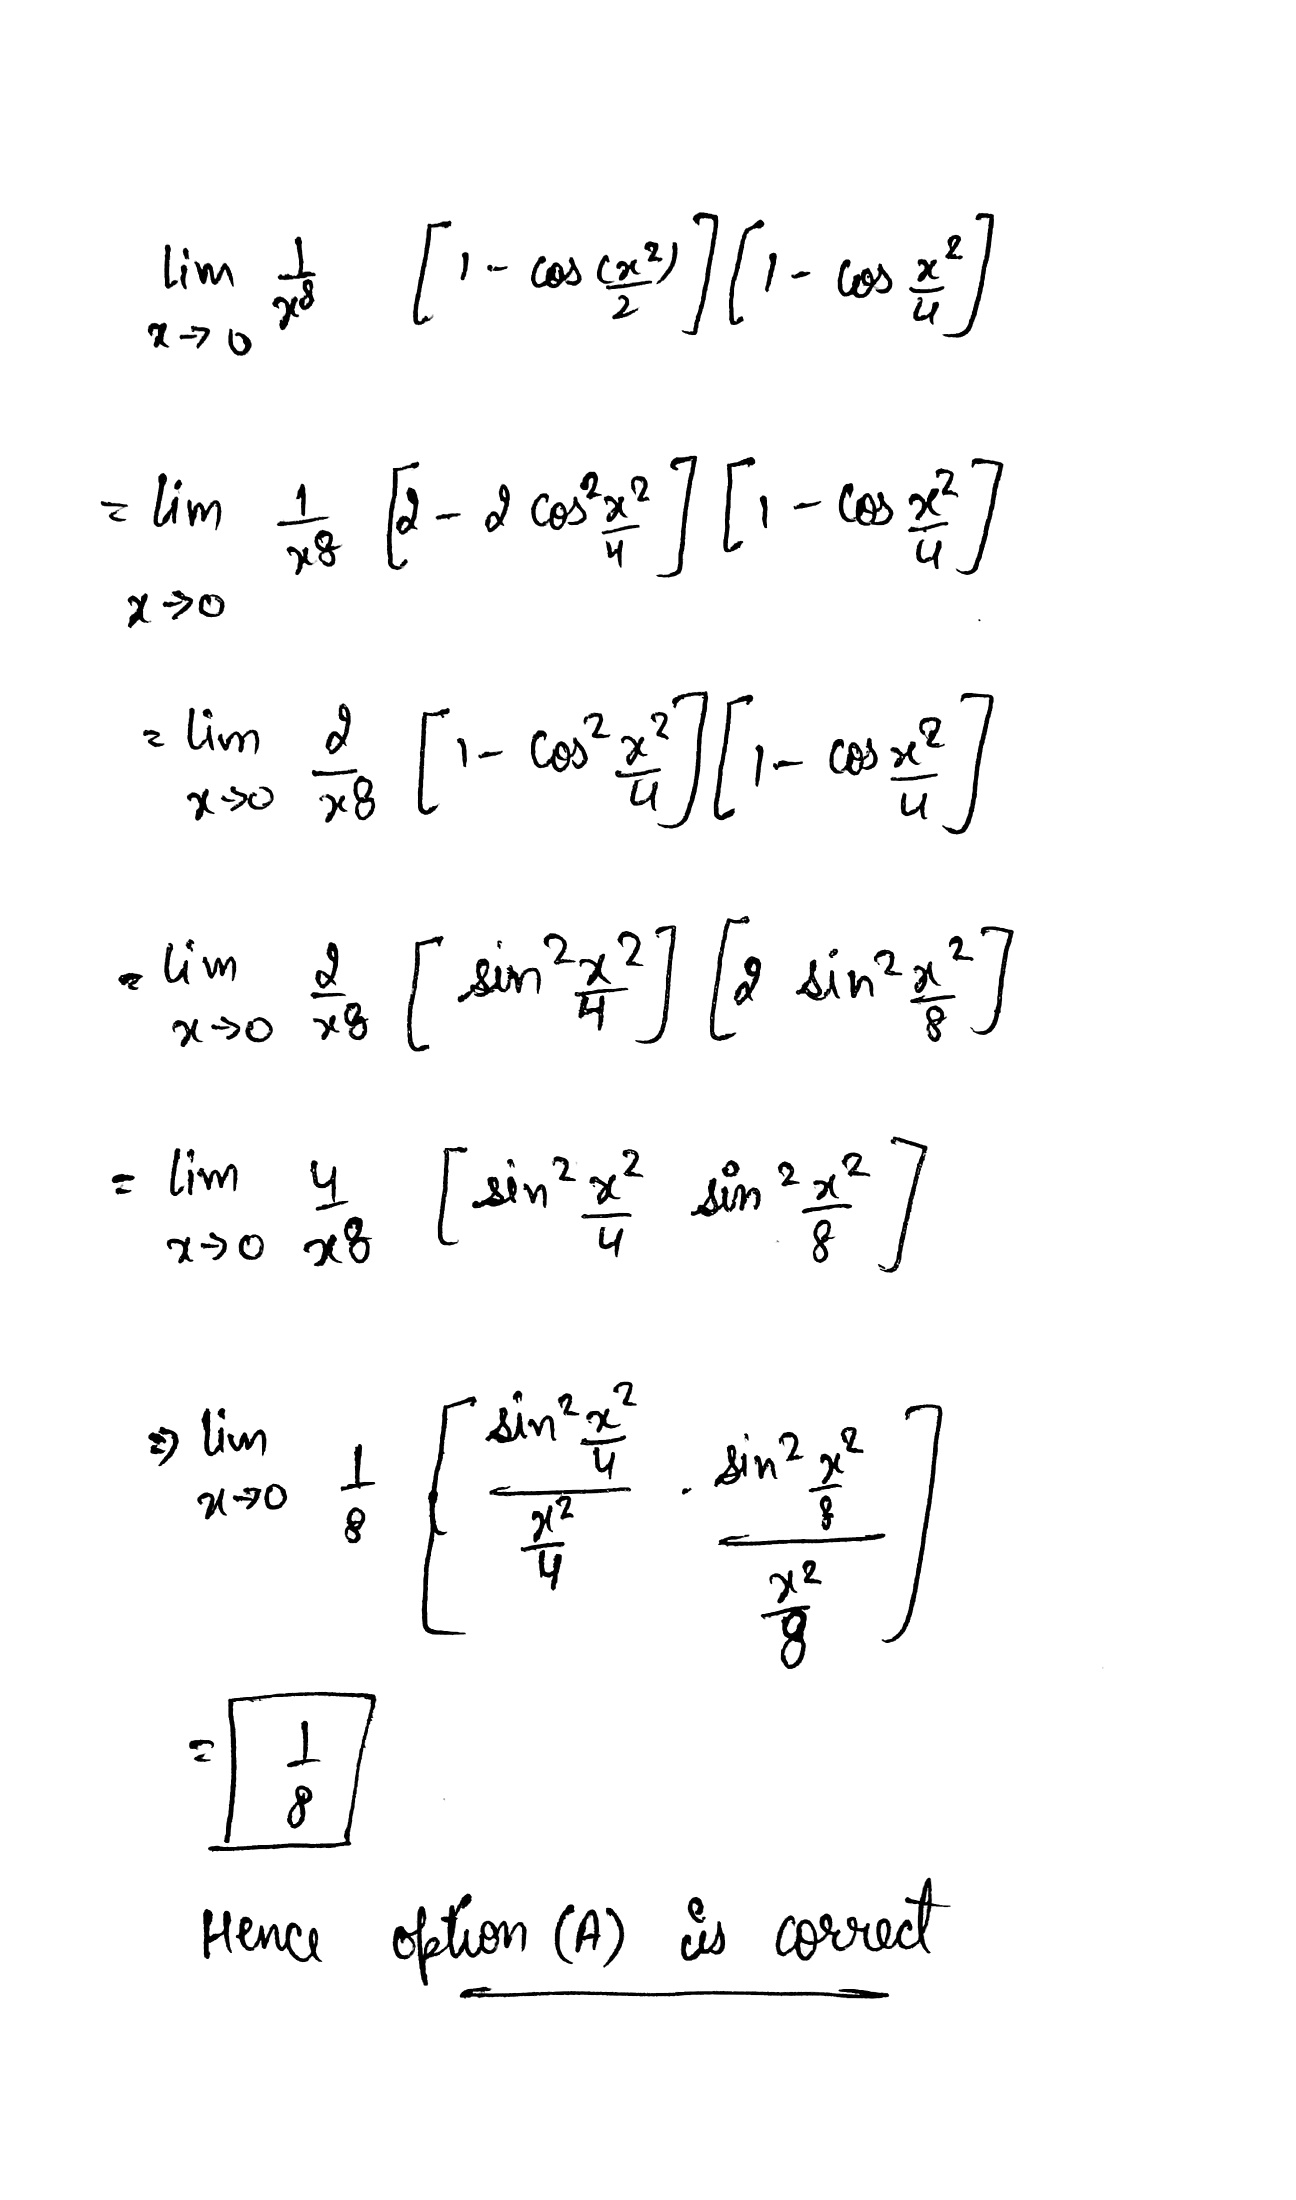 lim x→0 1/x⁸ [1 - cos (x²)/2] [1 - cos x²/4]
= lim x→0 1/x⁸ [2 - 2 cos² x²/4] [1 - cos x²/4]
= lim x→0 2/x⁸ [1 - cos² x²/4] [1 - cos x²/4]
= lim x→0 2/x⁸ [sin² x²/4] [2 sin² x²/8]
= lim x→0 4/x⁸ [sin² x²/4 sin² x²/8]
⇒ lim x→0 1/8 [(sin² x²/4)/(x²/4) · (sin² x²/8)/(x²/8)]
= 1/8
Hence option (A) is correct